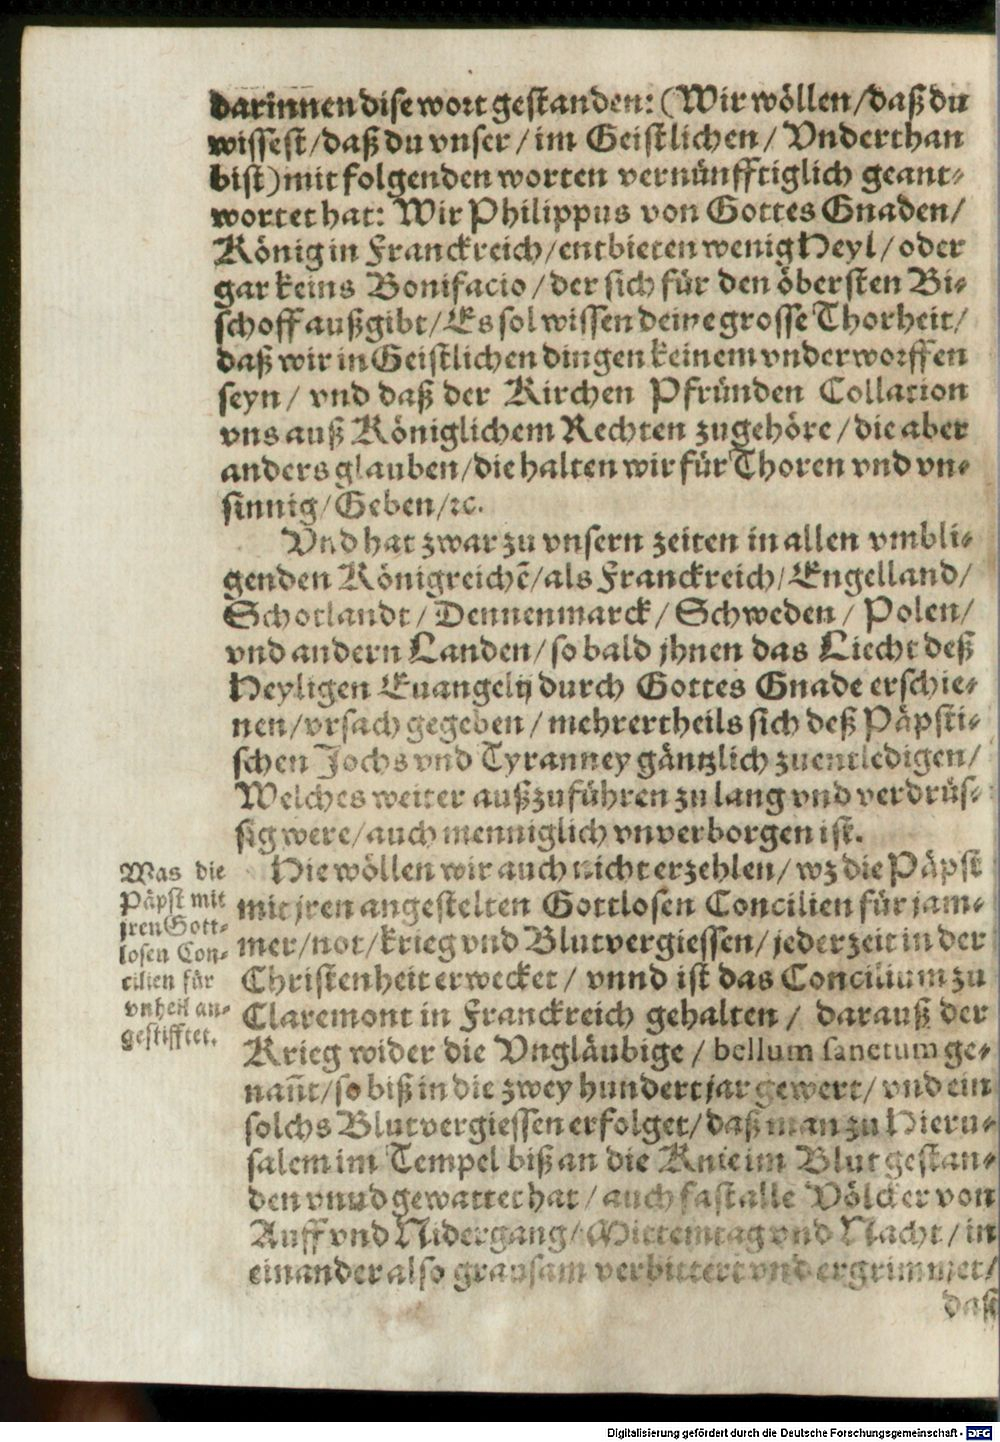 darinnen dise wort gestanden: (Wir wöllen/daß du
wissest/daß du vnser/im Geistlichen/Vnderthan
bist) mit folgenden worten vernünfftiglich geant-
wortet hat: Wir Philippus von Gottes Gnaden/
König in Franckreich/entbieten wenig Heyl/oder
gar keins Bonifacio/der sich für den öbersten Bi-
schoff außgibt/Es sol wissen deine grosse Thorheit/
daß wir in Geistlichen dingen keinem vnderworffen
seyn/vnd daß der Kirchen Pfründen Collation
vns auß Königlichem Rechten zugehöre/die aber
anders glauben/die halten wir für Thoren vnd vn-
sinnig/Geben/ꝛc.
Vnd hat zwar zu vnsern zeiten in allen vmbli-
genden Königreichẽ/als Franckreich/Engelland/
Schotlandt/Dennenmarck/Schweden/Polen/
vnd andern Landen/so bald jhnen das Liecht deß
Heyligen Euangelij durch Gottes Gnade erschie-
nen/vrsach gegeben/mehrertheils sich deß Päpsti-
schen Jochs vnd Tyranney gäntzlich zuentledigen/
Welches weiter außzuführen zu lang vnd verdrüs-
sig were/auch menniglich vnverborgen ist.
Was die
Päpst mit
jren Gott-
losen Con-
cilien für
vnheil an-
gestifftet.
Hie wöllen wir auch nicht erzehlen/wz die Päpst
mit jren angestelten Gottlosen Concilien für jam-
mer/not/krieg vnd Blutvergiessen/jeder zeit in der
Christenheit erwecket/vnnd ist das Concilium zu
Claremont in Franckreich gehalten/darauß der
Krieg wider die Vngläubige/bellum sanctum ge-
nañt/so biß in die zwey hundert jar gewert/vnd ein
solchs Blutvergiessen erfolget/daß man zu Hieru-
salem im Tempel biß an die Knie im Blut gestan-
den vnnd gewattet hat/auch fast alle Völcker von
Auff vnd Nidergang/Mittemtag vnd Nacht/in
einander also grausam verbittert vnd ergrimmet/
daß
Digitalisierung gefördert durch die Deutsche Forschungsgemeinschaft - DFG